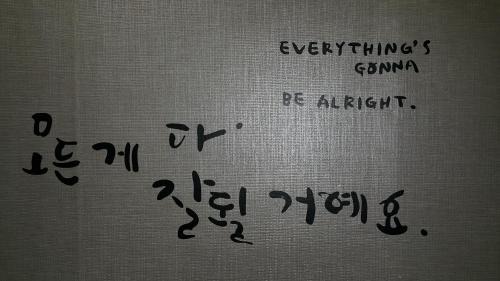 EVERYTHING'S
GONNA
BE ALRIGHT.
모든 게 다
잘될 거예요.